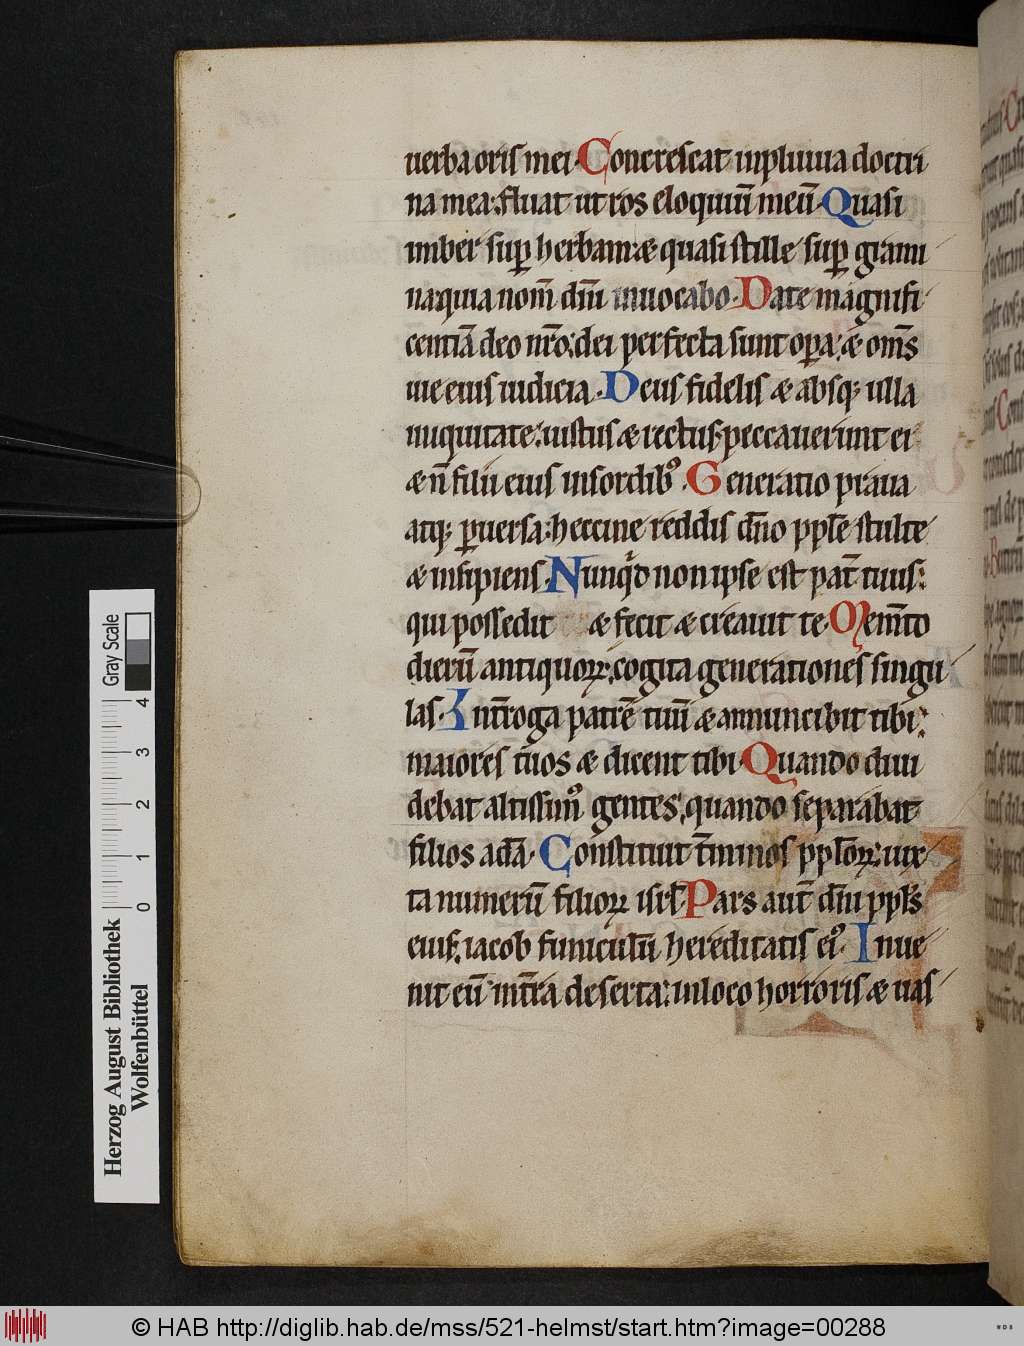 uerba oris mei. Concrescat inpluuia doctri
na mea: fluat ut ros eloquiū meū. Quasi
imber sup̄ herbam: & quasi stille sup̄ grami
na: quia nom̄ dn̄i inuocabo. Date magnifi
centiā deo nr̄o: dei perfecta sunt op̄a: & om̄s
uie eius iudicia. Deus fidelis & absq; ulla
iniquitate: iustus & rectus: peccauerunt ei
& n̄ filii eius insordib᷒. Generatio praua
atq; p̄uersa: heccine reddis dn̄o pp̄le stulte
& insipiens. Nunqd̄ non ipse est pat̄ tuus:
qui possedit & fecit & creauit te. Mem̄to
dierū antiquoꝝ: cogita generationes singu
las. Int̄roga patrē tuū & annuncibit tibi:
maiores tuos & dicent tibi. Quando diui
debat altissim᷒ gentes: quando separabat
filios adā. Constituit t̄minos pp̄loꝝ: iux
ta numerū filioꝝ isrl̄. Pars aut̄ dn̄i pp̄ls
eius: iacob funiculū hereditatis ei᷒. Inue
nit eū int̄ra deserta: inloco horroris & uas
Herzog August Bibliothek
Wolfenbüttel
0 1 2 3 4
Gray Scale
© HAB http://diglib.hab.de/mss/521-helmst/start.htm?image=00288